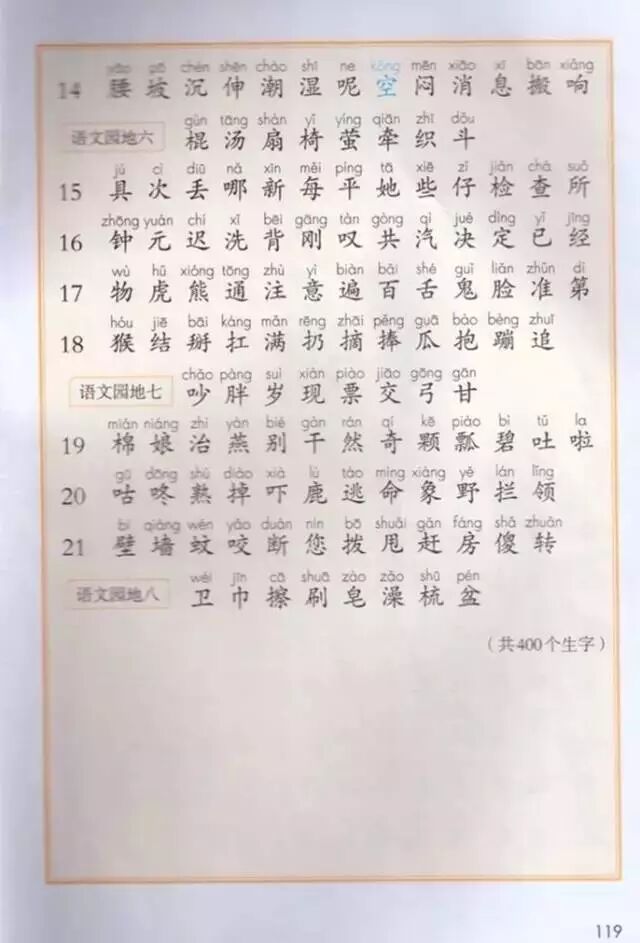 yāo pō chén shēn cháo shī ne kōng mēn xiāo xī bān xiǎng
14 腰 坡 沉 伸 潮 湿 呢 空 闷 消 息 搬 响
gùn tāng shàn yǐ yíng qiān zhī dǒu
语文园地六 棍 汤 扇 椅 萤 牵 织 斗
jù cì diū nǎ xīn měi píng tā xiē zǐ jiǎn chá suǒ
15 具 次 丢 哪 新 每 平 她 些 仔 检 查 所
zhōng yuán chí xǐ bēi gāng tàn gòng qì jué dìng yǐ jīng
16 钟 元 迟 洗 背 刚 叹 共 汽 决 定 已 经
wù hǔ xióng tōng zhù yì biàn bǎi shé guǐ liǎn zhǔn dì
17 物 虎 熊 通 注 意 遍 百 舌 鬼 脸 准 第
hóu jiē bāi káng mǎn rēng zhāi pěng guā bào bèng zhuī
18 猴 结 掰 扛 满 扔 摘 捧 瓜 抱 蹦 追
chǎo pàng suì xiàn piào jiāo gōng gān
语文园地七 吵 胖 岁 现 票 交 弓 甘
mián niáng zhì yàn bié gàn rán qí kē piáo bì tǔ la
19 棉 娘 治 燕 别 干 然 奇 颗 瓢 碧 吐 啦
gū dōng shú diào xià lù táo mìng xiàng yě lán lǐng
20 咕 咚 熟 掉 吓 鹿 逃 命 象 野 拦 领
bì qiáng wén yǎo duàn nín bō shuǎi gǎn fáng shǎ zhuǎn
21 壁 墙 蚊 咬 断 您 拨 甩 赶 房 傻 转
wèi jīn cā shuā zào zǎo shū pén
语文园地八 卫 巾 擦 刷 皂 澡 梳 盆
（共400个生字）
119